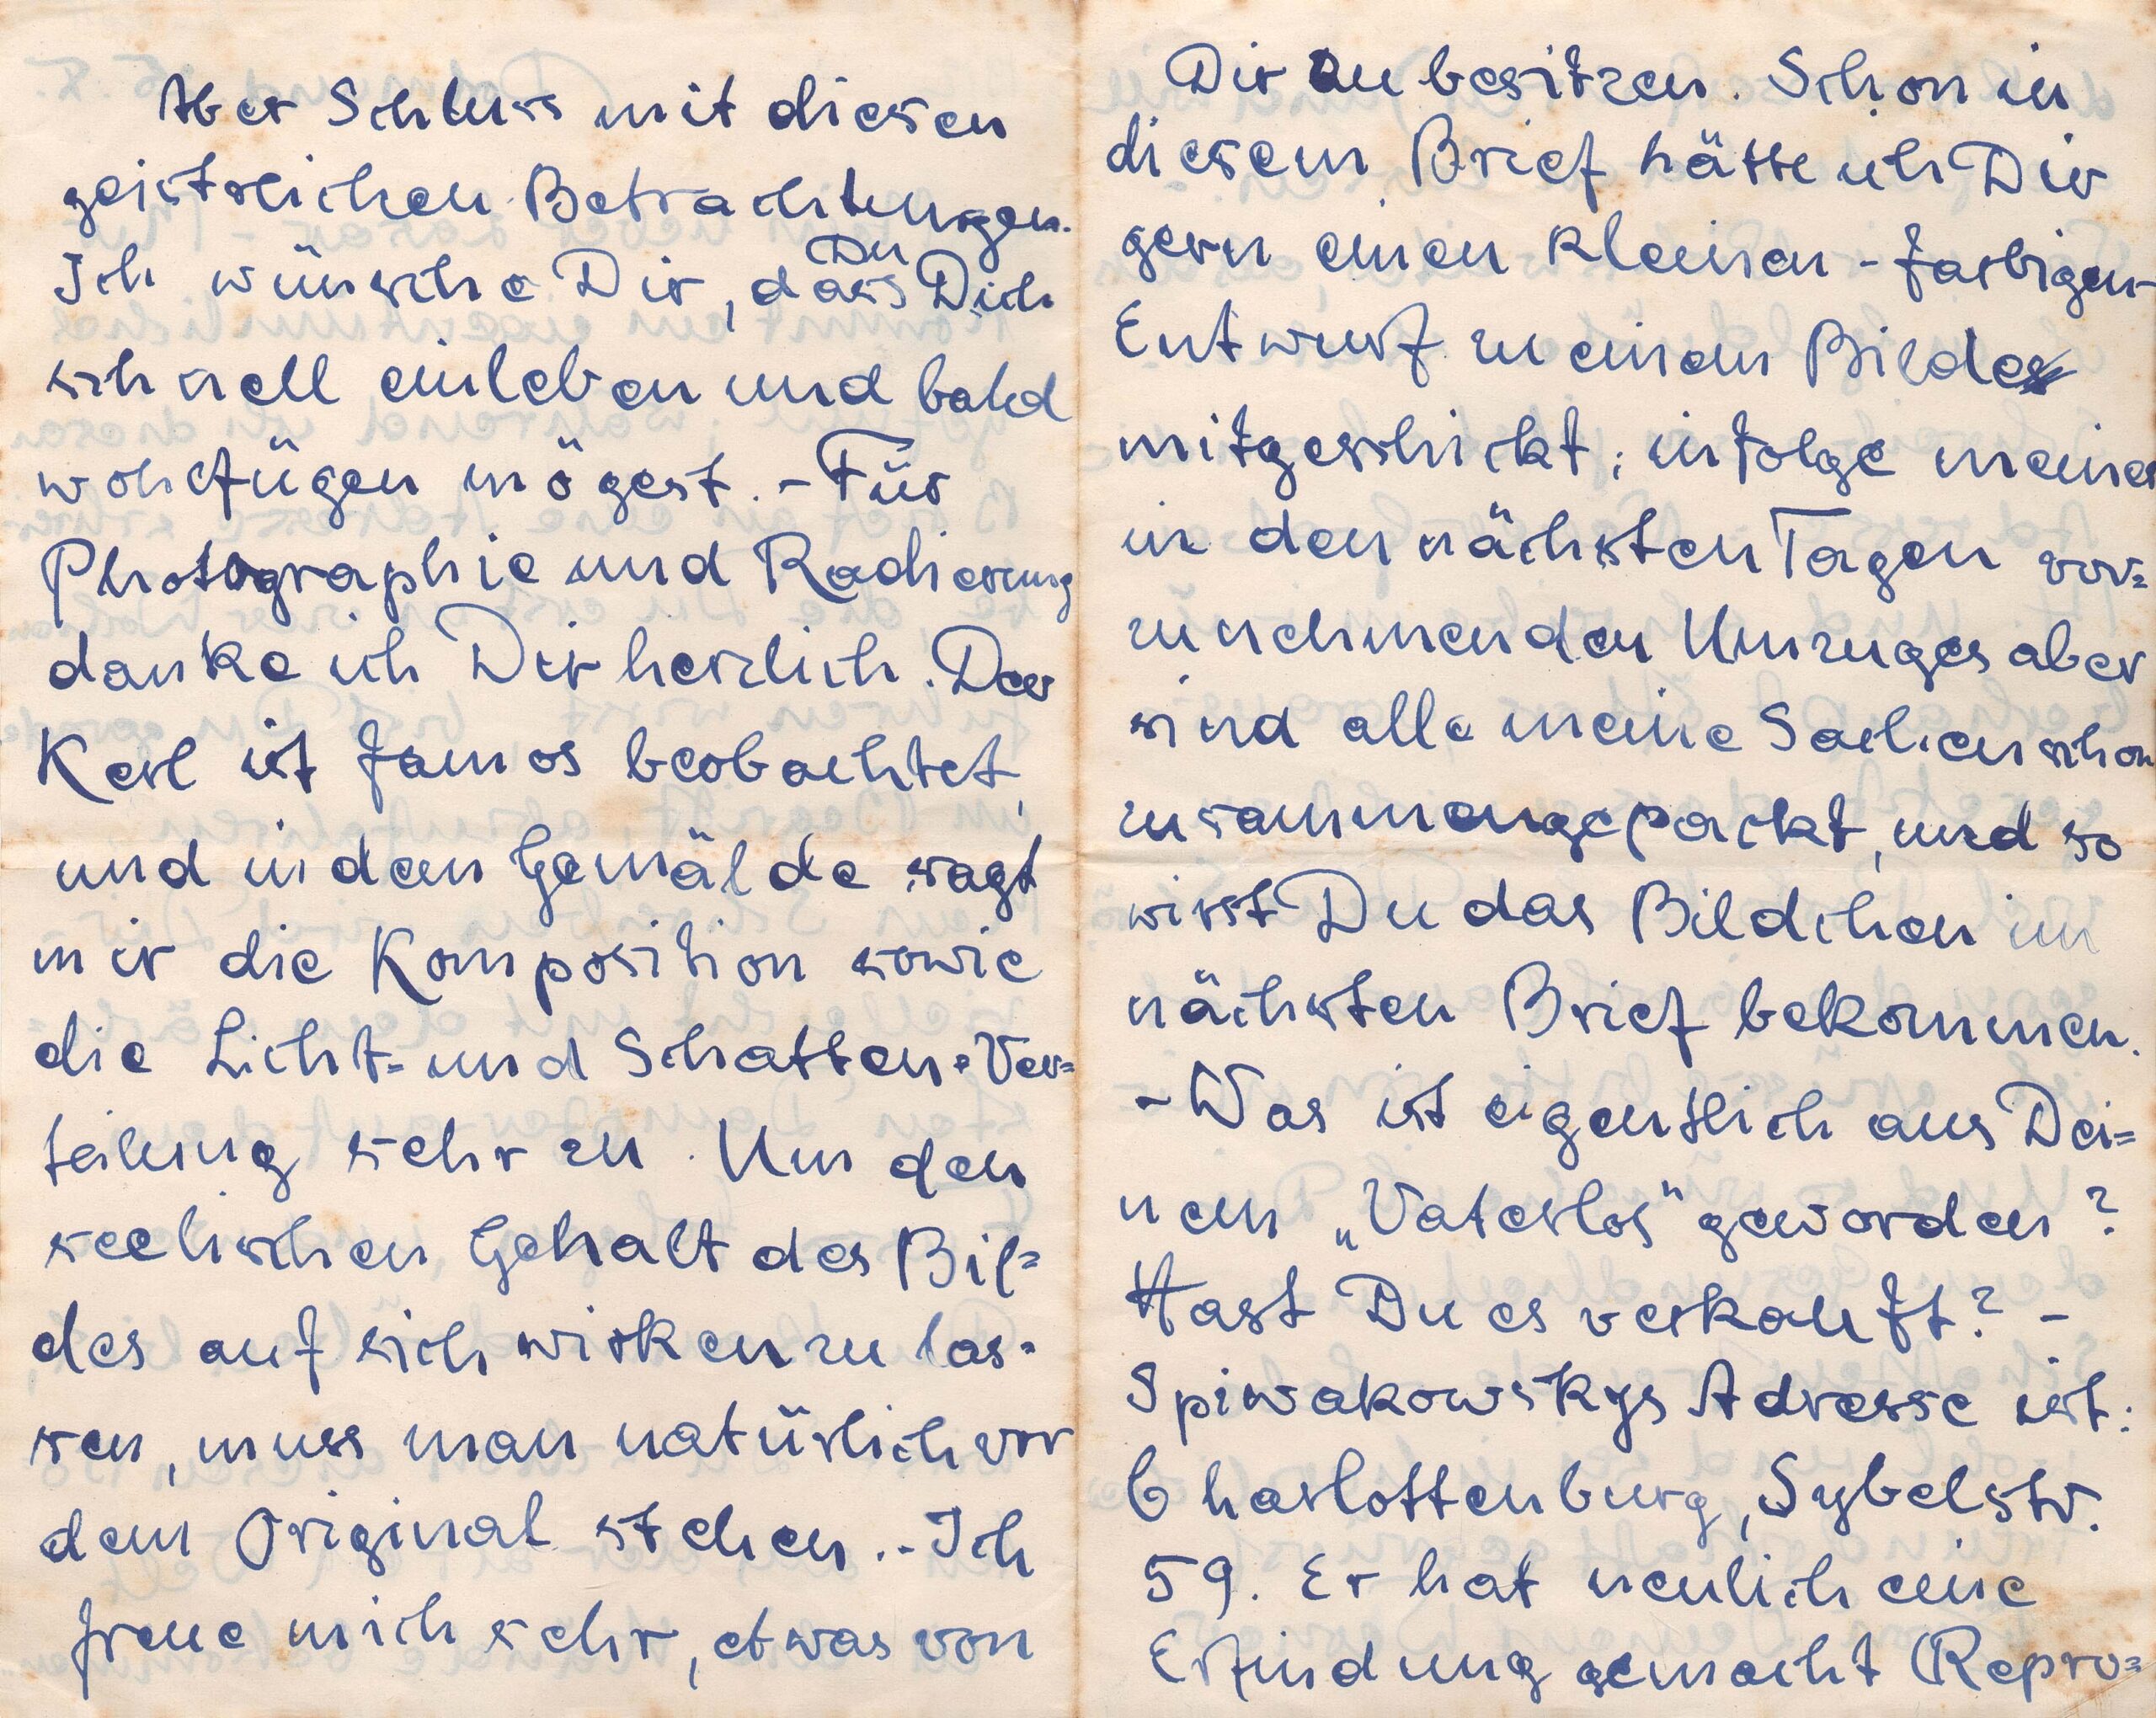 Aber Schluss mit diesen
geistreichen Betrachtungen.
Ich wünsche Dir, dass Du Dich
schnell einleben und bald
wohlfügen mögest. - Für
Photographie und Radierung
danke ich Dir herzlich. Der
Kerl ist famos beobachtet,
und in dem Gemälde sagt
mir die Komposition sowie
die Licht= und Schatten=Ver=
teilung sehr zu. Um den
seelischen Gehalt des Bil=
des auf sich wirken zu las=
sen, muss man natürlich vor
dem Original stehen. - Ich
freue mich sehr, etwas von
Dir zu besitzen. Schon in
diesem Brief hätte ich Dir
gern einen kleinen - farbigen -
Entwurf zu einem Bilde
mitgeschickt; infolge meines
in den nächsten Tagen vor=
zunehmenden Umzuges aber
sind alle meine Sachen schon
zusammengepackt, und so
wirst Du das Bildchen im
nächsten Brief bekommen.
- Was ist eigentlich aus Dei=
nem „Vaterlos" geworden?
Hast Du es verkauft? -
Spiwakowskys Adresse ist:
Charlottenburg, Sybelstr.
59. Er hat neulich eine
Erfindung gemacht (Repro=